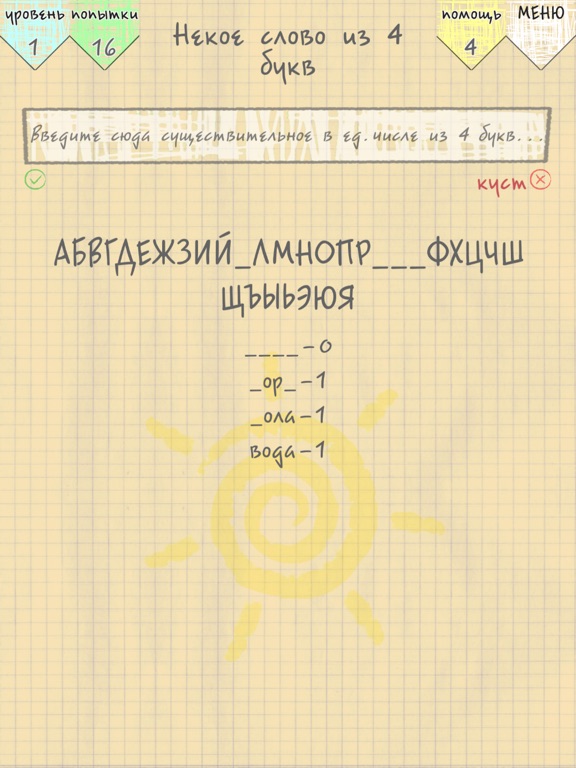 уровень попытки
1 16
Некое слово из 4
букв
помощь МЕНЮ
4
Введите сюда существительное в ед. числе из 4 букв...
куст
АБВГДЕЖЗИЙ_ЛМНОПР___ФХЦЧШ
ЩЪЫЬЭЮЯ
____-0
_ор_-1
_ола-1
вода-1